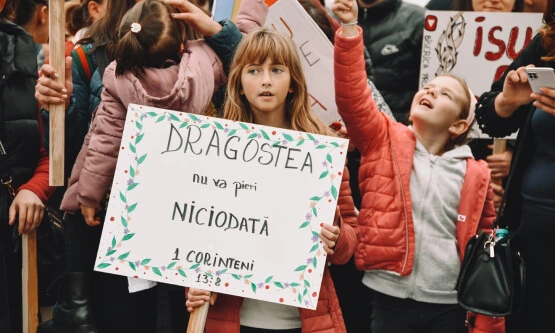 DRAGOSTEA
nu va pieri
NICIODATĂ
1 CORINTENI
13:8
isu